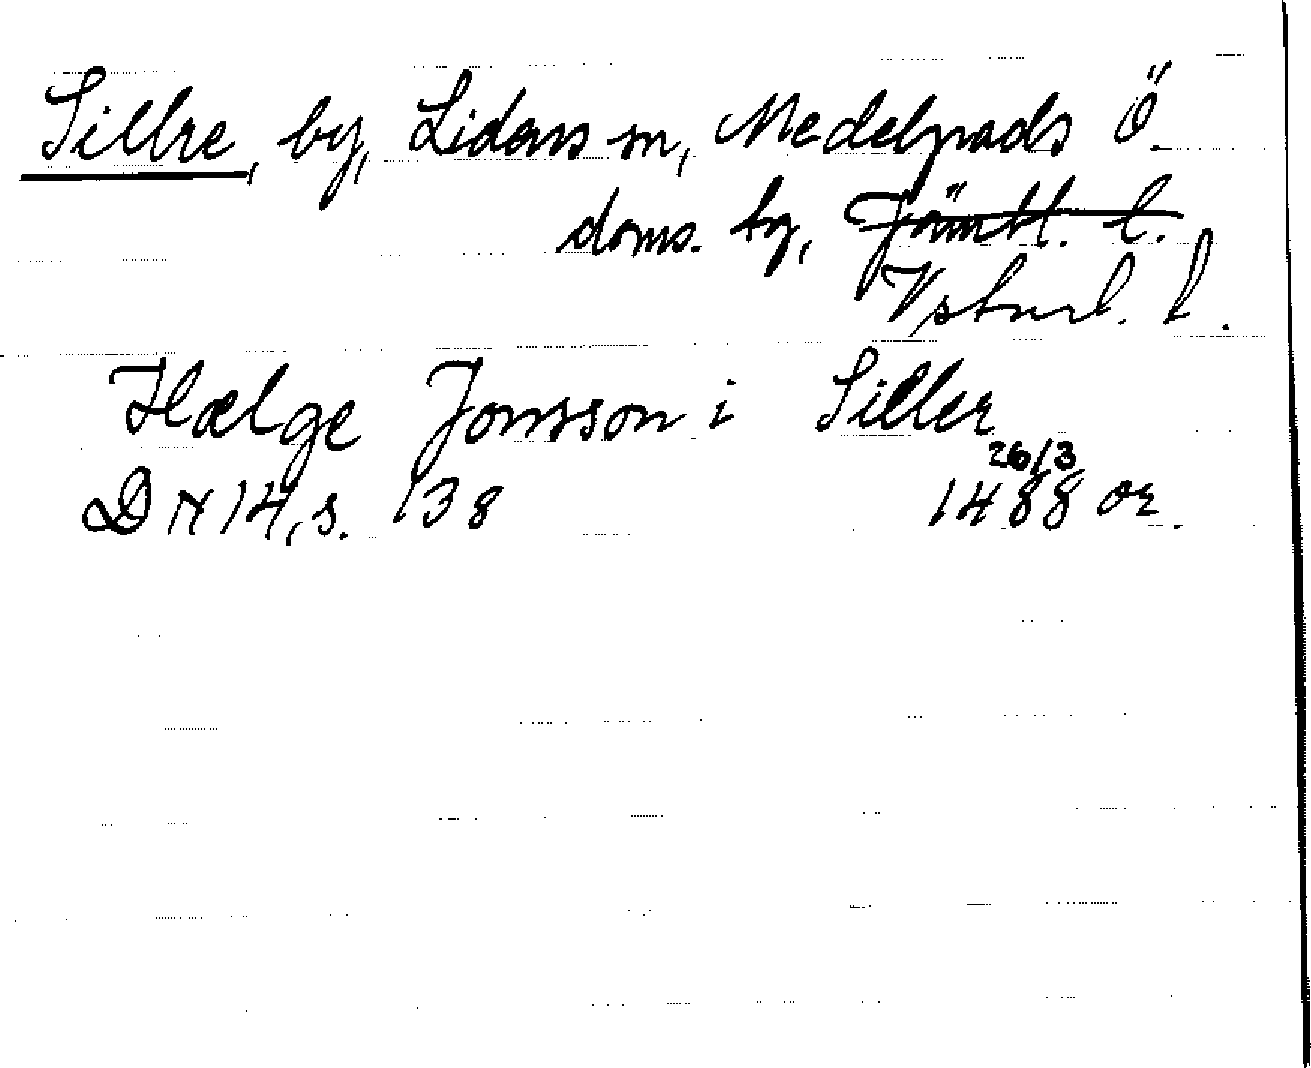 Sillre, by, Lidens sn, Medelpads Ö.
doms. by, Jämtl. l.
Vstnrl. l.
Hælge Jonsson i Siller
26/3
DN 14, s. 138 1488 or.